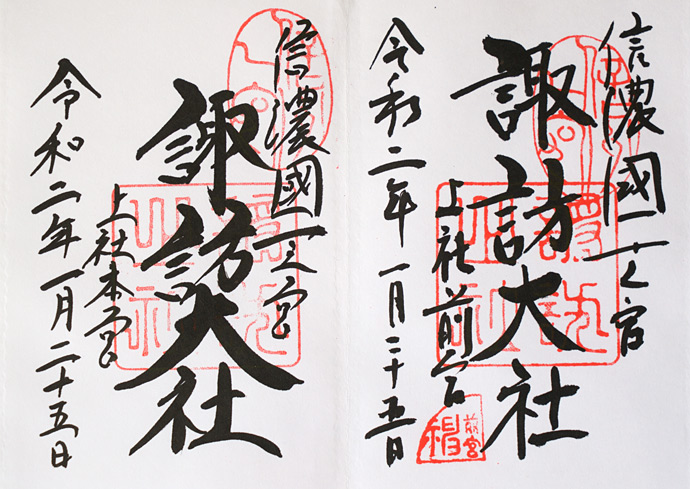 信濃國一之宮
諏訪大社
上社前宮
令和二年一月二十五日
前宮
信濃國一之宮
諏訪大社
上社本宮
令和二年一月二十五日